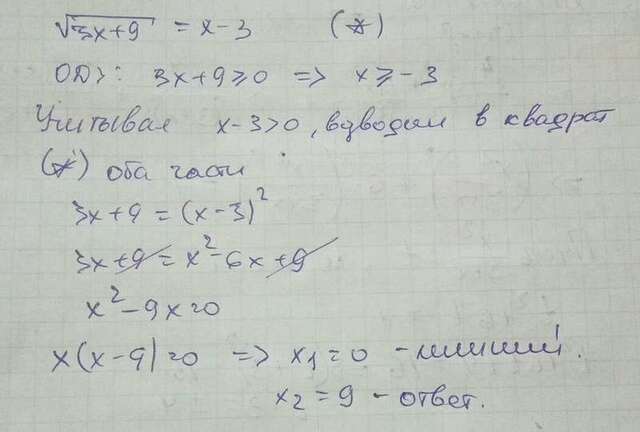 √3x+9 = x-3 (*)
ОДЗ: 3x+9≥0 => x≥-3
Учитывая x-3>0, возводим в квадрат
(*) оба части
3x+9=(x-3)²
3x+9=x²-6x+9
x²-9x=0
x(x-9)=0 => x₁=0 - лишний.
x₂=9 - ответ.